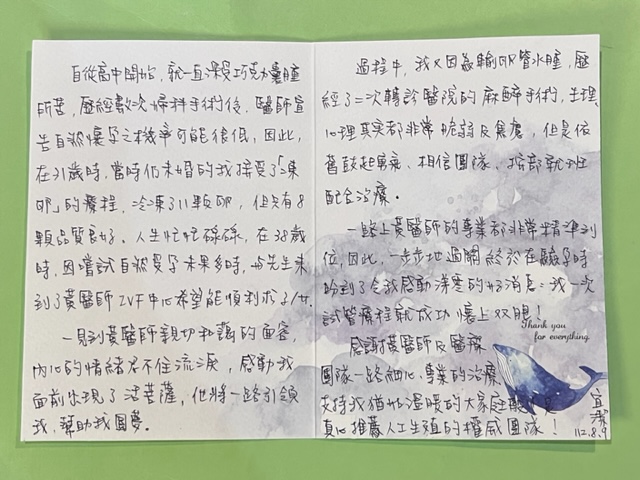 自從高中開始,就一直深受巧克力囊腫
所苦,歷經數次婦科手術後,醫師宣
告自然懷孕之機率可能很低,因此,
在31歲時,當時仍未婚的我接受了「凍
卵」的療程,冷凍了11顆卵,但只有8
顆品質良好。人生忙忙碌碌,在38歲
時,因嘗試自然受孕未果多時,與先生來
到了黃醫師IVF中心希望能順利求子/女。
一見到黃醫師親切和藹的面容,
內心的情緒忍不住流淚,感動我
面前出現了活菩薩,他將一路引領
我、幫助我圓夢。
過程中,我又因為輸卵管水腫,歷
經了二次轉診醫院的麻醉手術,生理、
心理其實都非常脆弱及焦慮,但是依
舊鼓起勇氣、相信團隊、按部就班
配合治療。
一路上黃醫師的專業都非常精準到
位,因此,一步步地過關終於在驗孕時
盼到了令我感動落淚的好消息:我一次
試管療程就成功懷上双胞!
Thank you
for everything.
感謝黃醫師及醫療
團隊一路細心、專業的治療
支持我猶如溫暖的大家庭
真心推薦人工生殖的權威團隊!
宜潔
112.8.9